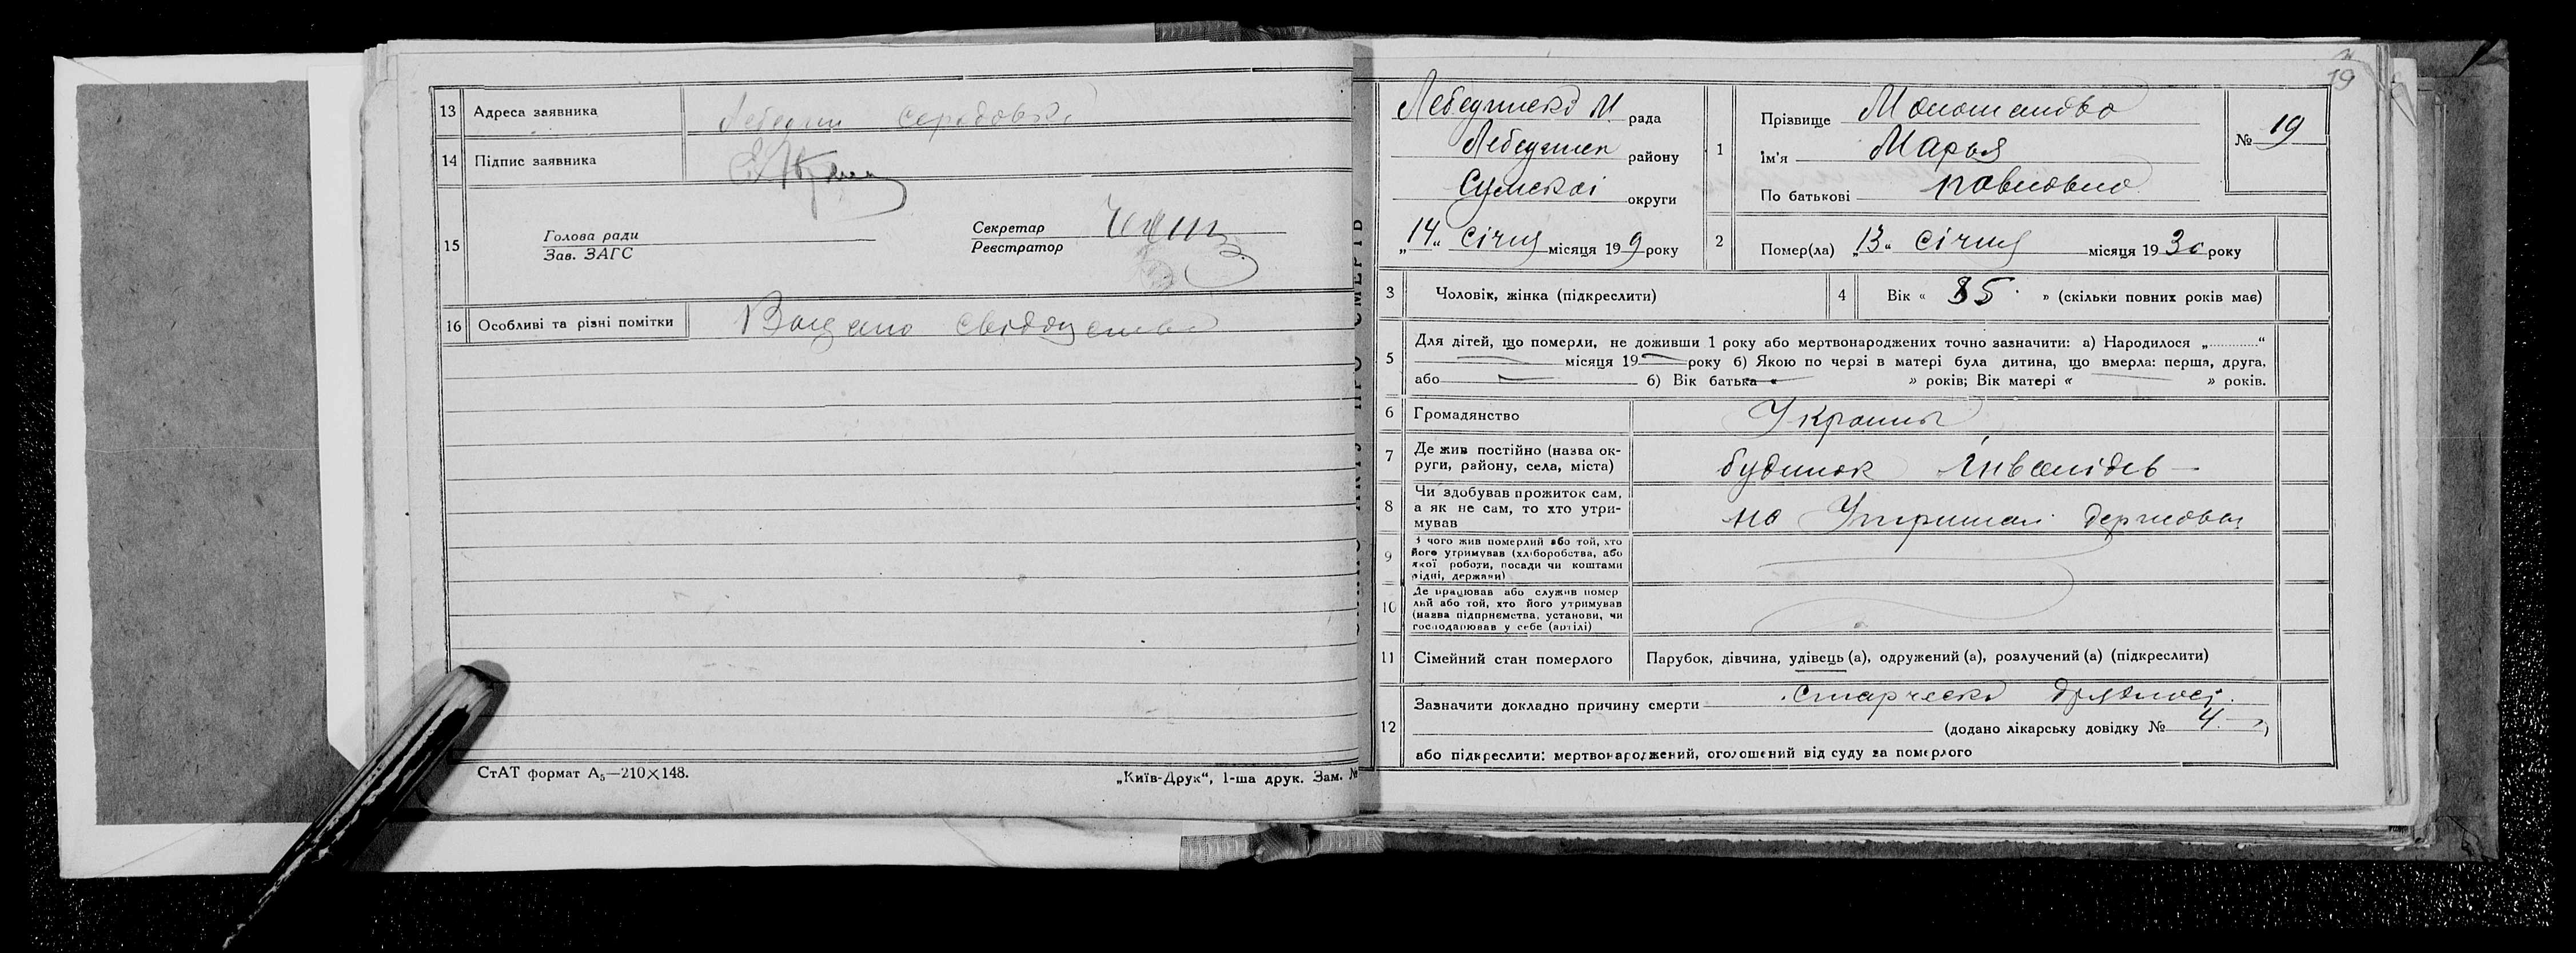 13 Адреса заявника Лебедин
14 Підпис заявника
15 Голова ради
Зав. ЗАГС
Секретар
Реєстратор
16 Особливі та різні помітки
СтАТ формат А₅—210×148.
„Київ-Друк“, 1-ша друк. Зам. №
19
Лебединські М. рада
Лебединск району
Сумскої округи
„14“ Січня місяця 199 року
1 Прізвище
Ім'я Марья
По батькові Павловно
№ 19
2 Помер(ла) „13“ Січня місяця 1930 року
3 Чоловік, жінка (підкреслити)
4 Вік « 85 » (скільки повних років має)
5 Для дітей, що померли, не доживши 1 року або мертвонароджених точно зазначити: а) Народилося „............“
місяця 19 року б) Якою по черзі в матері була дитина, що вмерла: перша, друга,
або б) Вік батька « » років; Вік матері « » років.
6 Громадянство Украины
7 Де жив постійно (назва ок-
руги, району, села, міста) будинок Інвалідів
8 Чи здобував прожиток сам,
а як не сам, то хто утри-
мував на Утримані держави
9 З чого жив померлий або той, хто
його утримував (хліборобства, або
якої роботи, посади чи коштами
рідні, держави)
10 Де працював або служив помер
лий або той, хто його утримував
(назва підприємства, установи, чи
господарював у себе (артілі)
11 Сімейний стан померлого Парубок, дівчина, удівець (а), одружений (а), розлучений (а) (підкреслити)
12 Зазначити докладно причину смерти старческа дряхлост.
(додано лікарську довідку № 4 )
або підкреслити: мертвонароджений, оголошений від суду за померлого